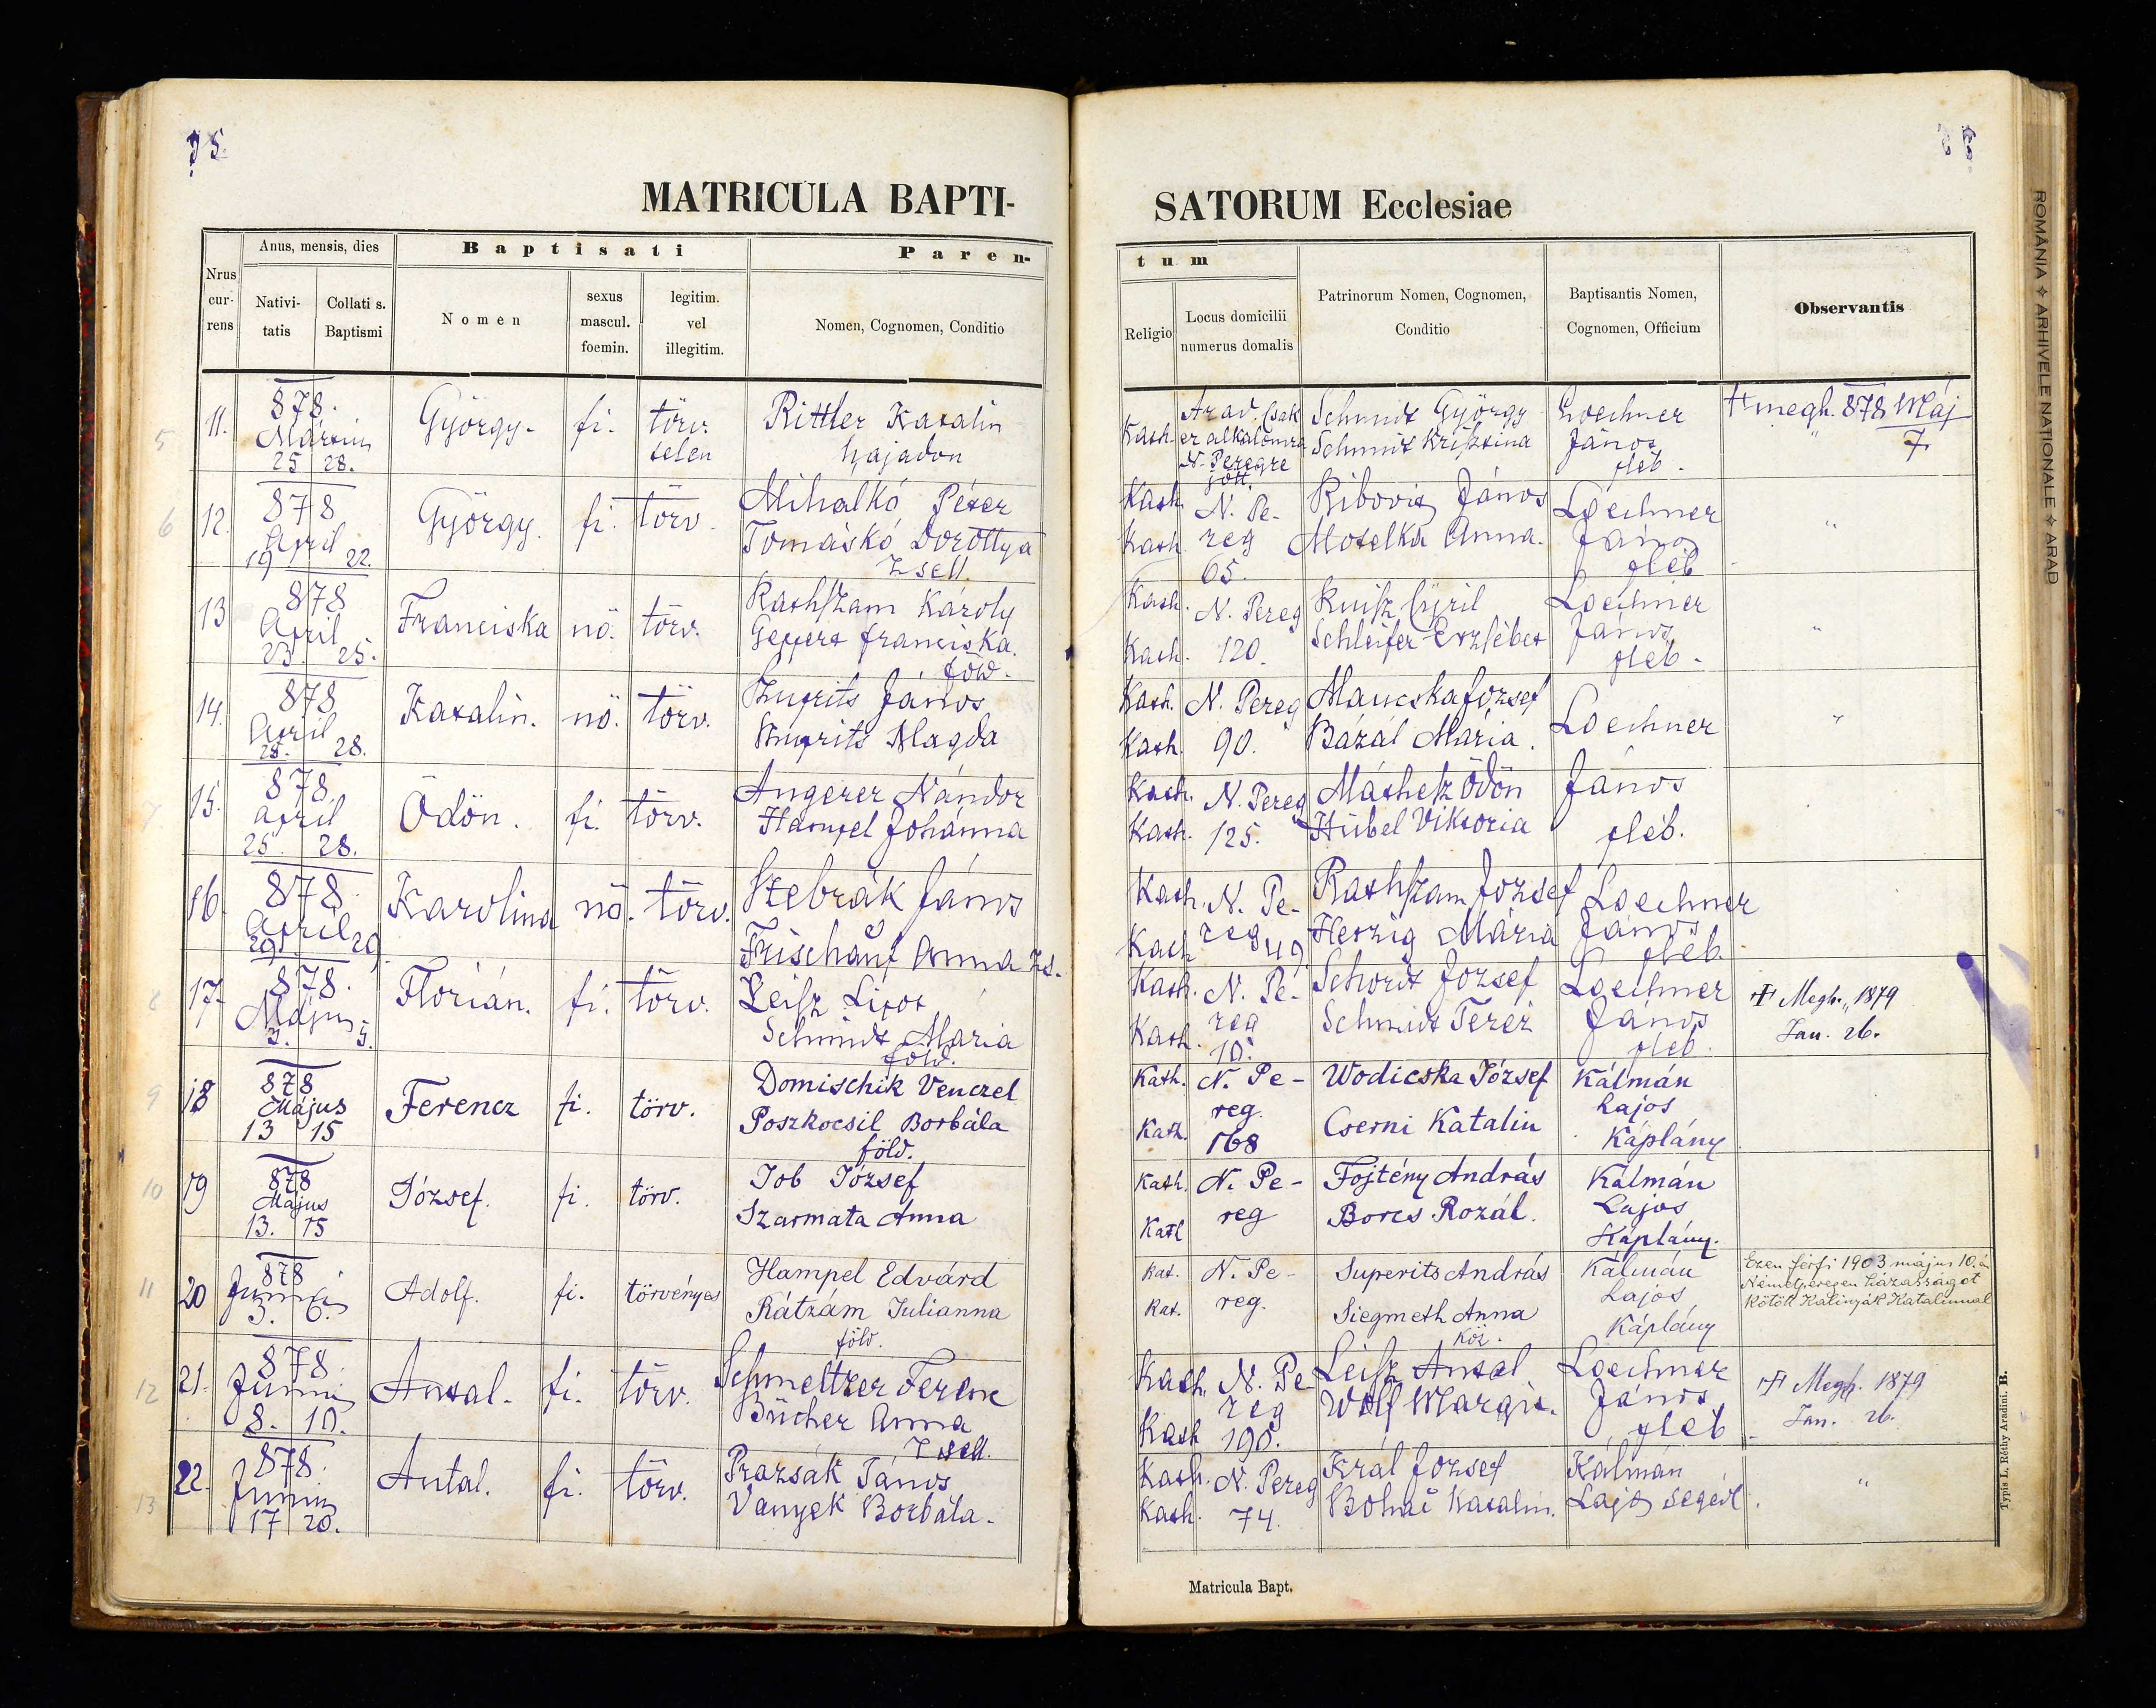 75.
MATRICULA BAPTI-
Nrus currens
Anus, mensis, dies
Nativitatis
Collati s. Baptismi
Baptisati
Nomen
sexus mascul. foemin.
legitim. vel illegitim.
Paren-
Nomen, Cognomen, Conditio
SATORUM Ecclesiae
tum
Religio
Locus domicilii numerus domalis
Patrinorum Nomen, Cognomen, Conditio
Baptisantis Nomen, Cognomen, Officium
Observantis
5 11. 878. Március 25 28. György- fi. törv. telen Rittler Katalin hajadon
Kath. Arad. Csak ez alkalomra N. Peregre jött. Schmidt György Schmidt Krisztina Loechner János pleb. megh. 878 Máj 7
6 12. 878 April 19 22. György. fi. törv. Mihalkó Péter Tomáskó Dorottya Zsell.
Kath. Kath N. Pereg 65. Ribovits János Motelka Anna. Loechner János pleb "
13 878 April 23. 25. Franciska nö. törv. Rathszam Károly Geppert Franciska. föld.
Kath. Kath. N. Pereg 120. Schleifer Erzsébet Loechner János pleb. "
14. 878 April 28. 28. Katalin. nö. törv. János Magda
Kath. Kath. N. Pereg 90. Maucska József Bázál Mária. Loechner "
7 15. 878 April 25. 28. Ödön. fi. törv. Angerer Nándor Hampel Johánna
Kath. Kath. N. Pereg 125. Máthesz Ödön Hübel Viktoria János pleb.
16 878. April 29. 29. Karolina nö. törv. Stebrák János Frischauf Anna Zs.
Kath. Kath N. Pereg 49 Rathszam József Herzig Mária Loechner János pleb.
8 17. 878. Május 3. 5. Flórián. fi. törv. Leisz Lipót Schmidt Maria föld.
Kath. Kath. N. Pereg 10. József Schmidt Teréz Loechner János pleb. Megh. 1879 Jan. 26.
9 18 878 Május 13 15 Ferencz fi. törv. Domischik Venczel Poszkocsil Borbála föld.
Kath. Kath. N. Pe-reg. 168 Wodicska József Cserni Katalin Kálmán Lajos Káplány
10 19 878 Május 13. 15 József. fi. törv. Job József Szarmata Anna
Kath. Kath N. Pe-reg Fojtény András Borcs Rozál. Kálmán Lajos Káplány.
11 20 878 Junius 3. 6. Adolf. fi. törvényes Hampel Edvárd Rátzám Julianna föld.
Kat. Kat. N. Pe-reg. Superits András Siegmeth Anna Kálmán Lajos Káplány Ezen férfi 1903 május 10.én Németperegen házasságot kötött Kalinyák Katalinnal
12 21. 878. Junius 8. 10. Antal. fi. törv. Schmeltzer Ferenc Bücher Anna Zsell.
Kath. Kath N. Pereg 190. Leisz Antal Wolf Margit. Loechner János pleb Megh. 1879 Jan. 26.
13 22. 878. Junius 17 20. Antal. fi. törv. Prazsák János Vanyek Borbála.
Kath. Kath. N. Pereg 74. Král József Katalin. Kálmán Lajos segéd. "
Matricula Bapt.
Typis L. Réthy Aradini. B.
ROMÂNIA ✧ ARHIVELE NAȚIONALE ✧ ARAD